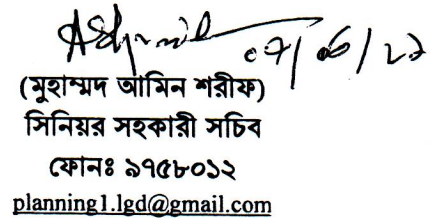 ০৭/০৬/২২
(মুহাম্মদ আমিন শরীফ)
সিনিয়র সহকারী সচিব
ফোনঃ ৯৭৫৮০১২
planning1.lgd@gmail.com